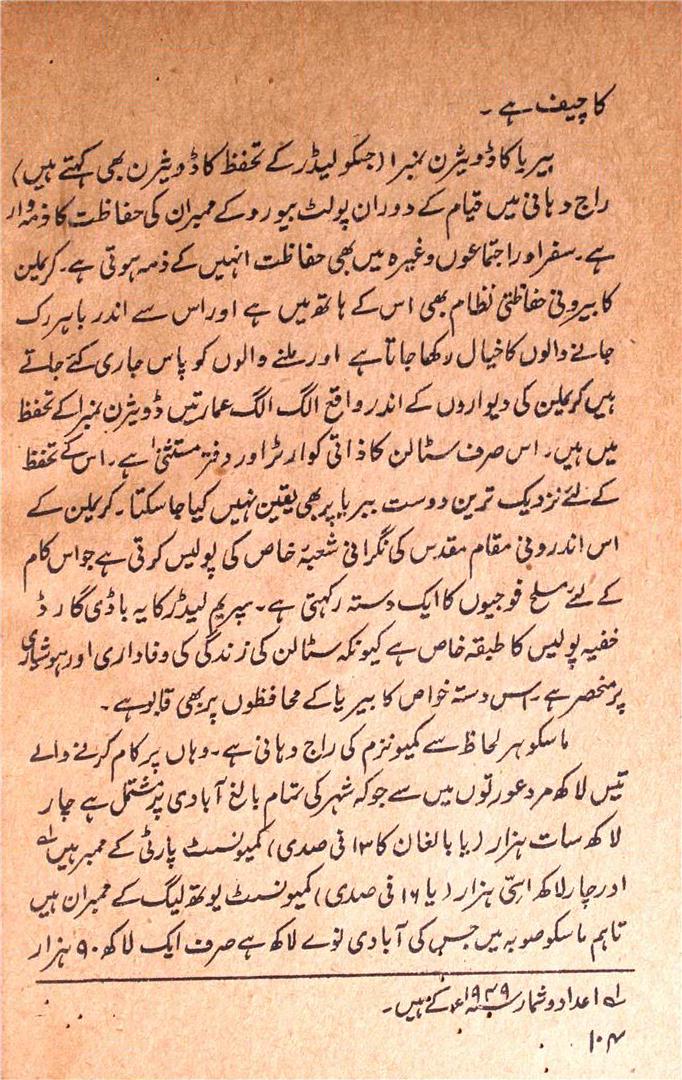 کا چیف ہے۔
بیریا کا ڈویژن نمبر ۱ (جسکو لیڈر کے تحفظ کا ڈویژن بھی کہتے ہیں)
راج دہانی میں قیام کے دوران پولٹ بیورو کے ممبران کی حفاظت کا ذمہ وار
ہے۔ سفر اور اجتماعوں وغیرہ میں بھی حفاظت انہیں کے ذمہ ہوتی ہے۔ کریملین
کا بیرونی حفاظتی نظام بھی اس کے ہاتھ میں ہے اور اس سے اندر باہر رک
جانے والوں کا خیال رکھا جاتا ہے اور ملنے والوں کو پاس جاری کئے جاتے
ہیں کریملین کی دیواروں کے اندر واقع الگ الگ عمارتیں ڈویژن نمبر۱ کے تحفظ
میں ہیں۔ اس صرف سٹالن کا ذاتی کوارٹر اور دفتر مستثنیٰ ہے۔ اس کے تحفظ
کے لئے نزدیک ترین دوست بیریا پر بھی یقین نہیں کیا جا سکتا۔ کریملین کے
اس اندرونی مقام مقدس کی نگرانی شعبۂ خاص کی پولیس کرتی ہے جو اس کام
کے لئے مسلح فوجیوں کا ایک دستہ رکہتی ہے۔ سپریم لیڈر کا یہ باڈی گارڈ
خفیہ پولیس کا طبقہ خاص ہے کیونکہ سٹالن کی زندگی کی وفاداری اور ہوشیاری
پر منحصر ہے۔ اس دستہ خواص کا بیریا کے محافظوں پر بھی قابو ہے۔
ماسکو ہر لحاظ سے کمیونزم کی راج دہانی ہے۔ وہاں پر کام کرنے والے
تیس لاکھ مرد عورتوں میں سے جو کہ شہر کی تمام بالغ آبادی پر مشتمل ہے چار
لاکھ سات ہزار (یا بالغان کا ۱۳ فی صدی) کمیونسٹ پارٹی کے ممبر ہیں لہ
اور چار لاکھ اسّی ہزار (یا ۱۶ فی صدی) کمیونسٹ یوتھ لیگ کے ممبران ہیں
تاہم ماسکو صوبہ میں جس کی آبادی نوے لاکھ ہے صرف ایک لاکھ ۹۰ ہزار
لہ اعداد و شمار ۱۹۴۹ء کے ہیں۔
۱۰۴